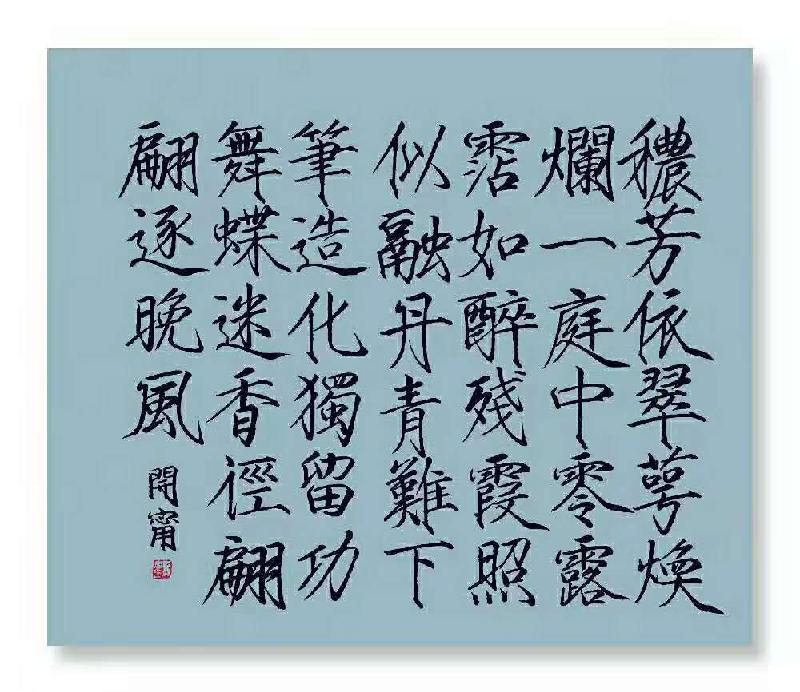 穠芳依翠萼煥
爛一庭中零露
霑如醉殘霞照
似融丹青難下
筆造化獨留功
舞蝶迷香徑翩
翩逐晚風
開甯